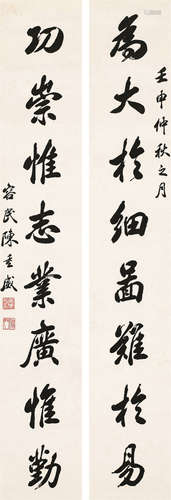 為大於細圖難於易
壬申仲秋之月
功崇惟志業廣惟勤
容民陳重威